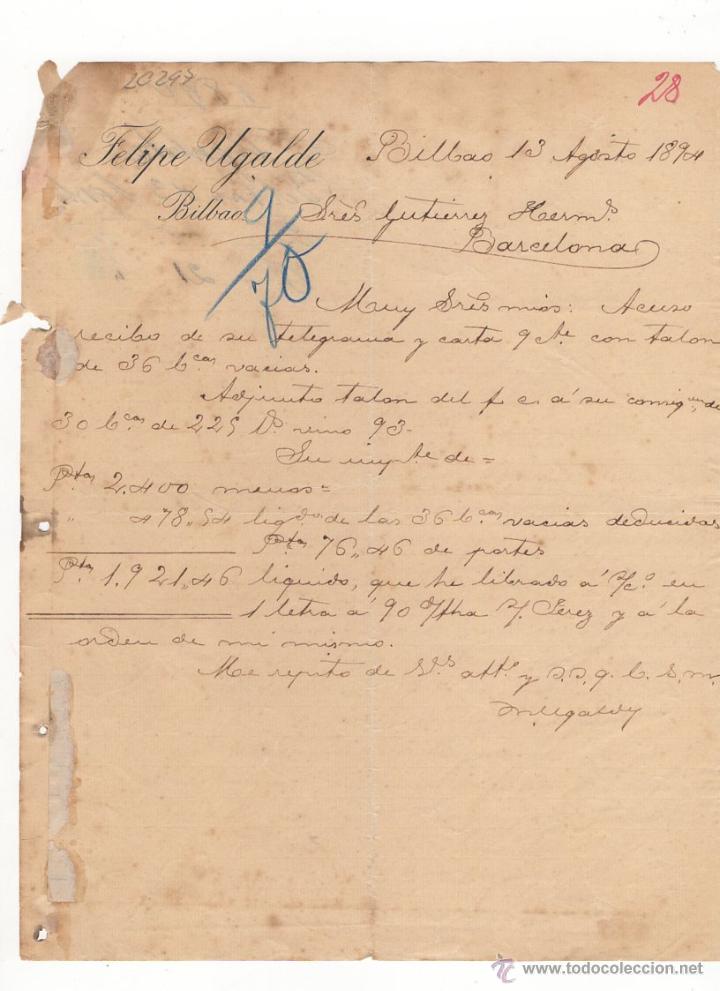 20297
28
Felipe Ugalde
Bilbao
Bilbao 13 Agosto 1894
9/70
Sres Gutierrez Herms.
Barcelona
Muy Sres mios: Acuso
recibo de su telegrama y carta 9 cte. con talon
de 36 bcas vacias.
Adjunto talon del f c. a su consigon. de
30 bcas de 225 vino 93-
Su impte. de =
Ptas 2.400 menos =
" 478,,54 liqdo. de las 36 bcas vacias deducidas
Ptas 76,,46 de portes
Ptas 1.921,,46 liquido, que he librado á s/co en
1 letra á 90 d/fha Perez y á la
orden de mi mismo.
Me repito de Vds atto. y s.s.q.b.s.m.
Ugalde
www.todocoleccion.net